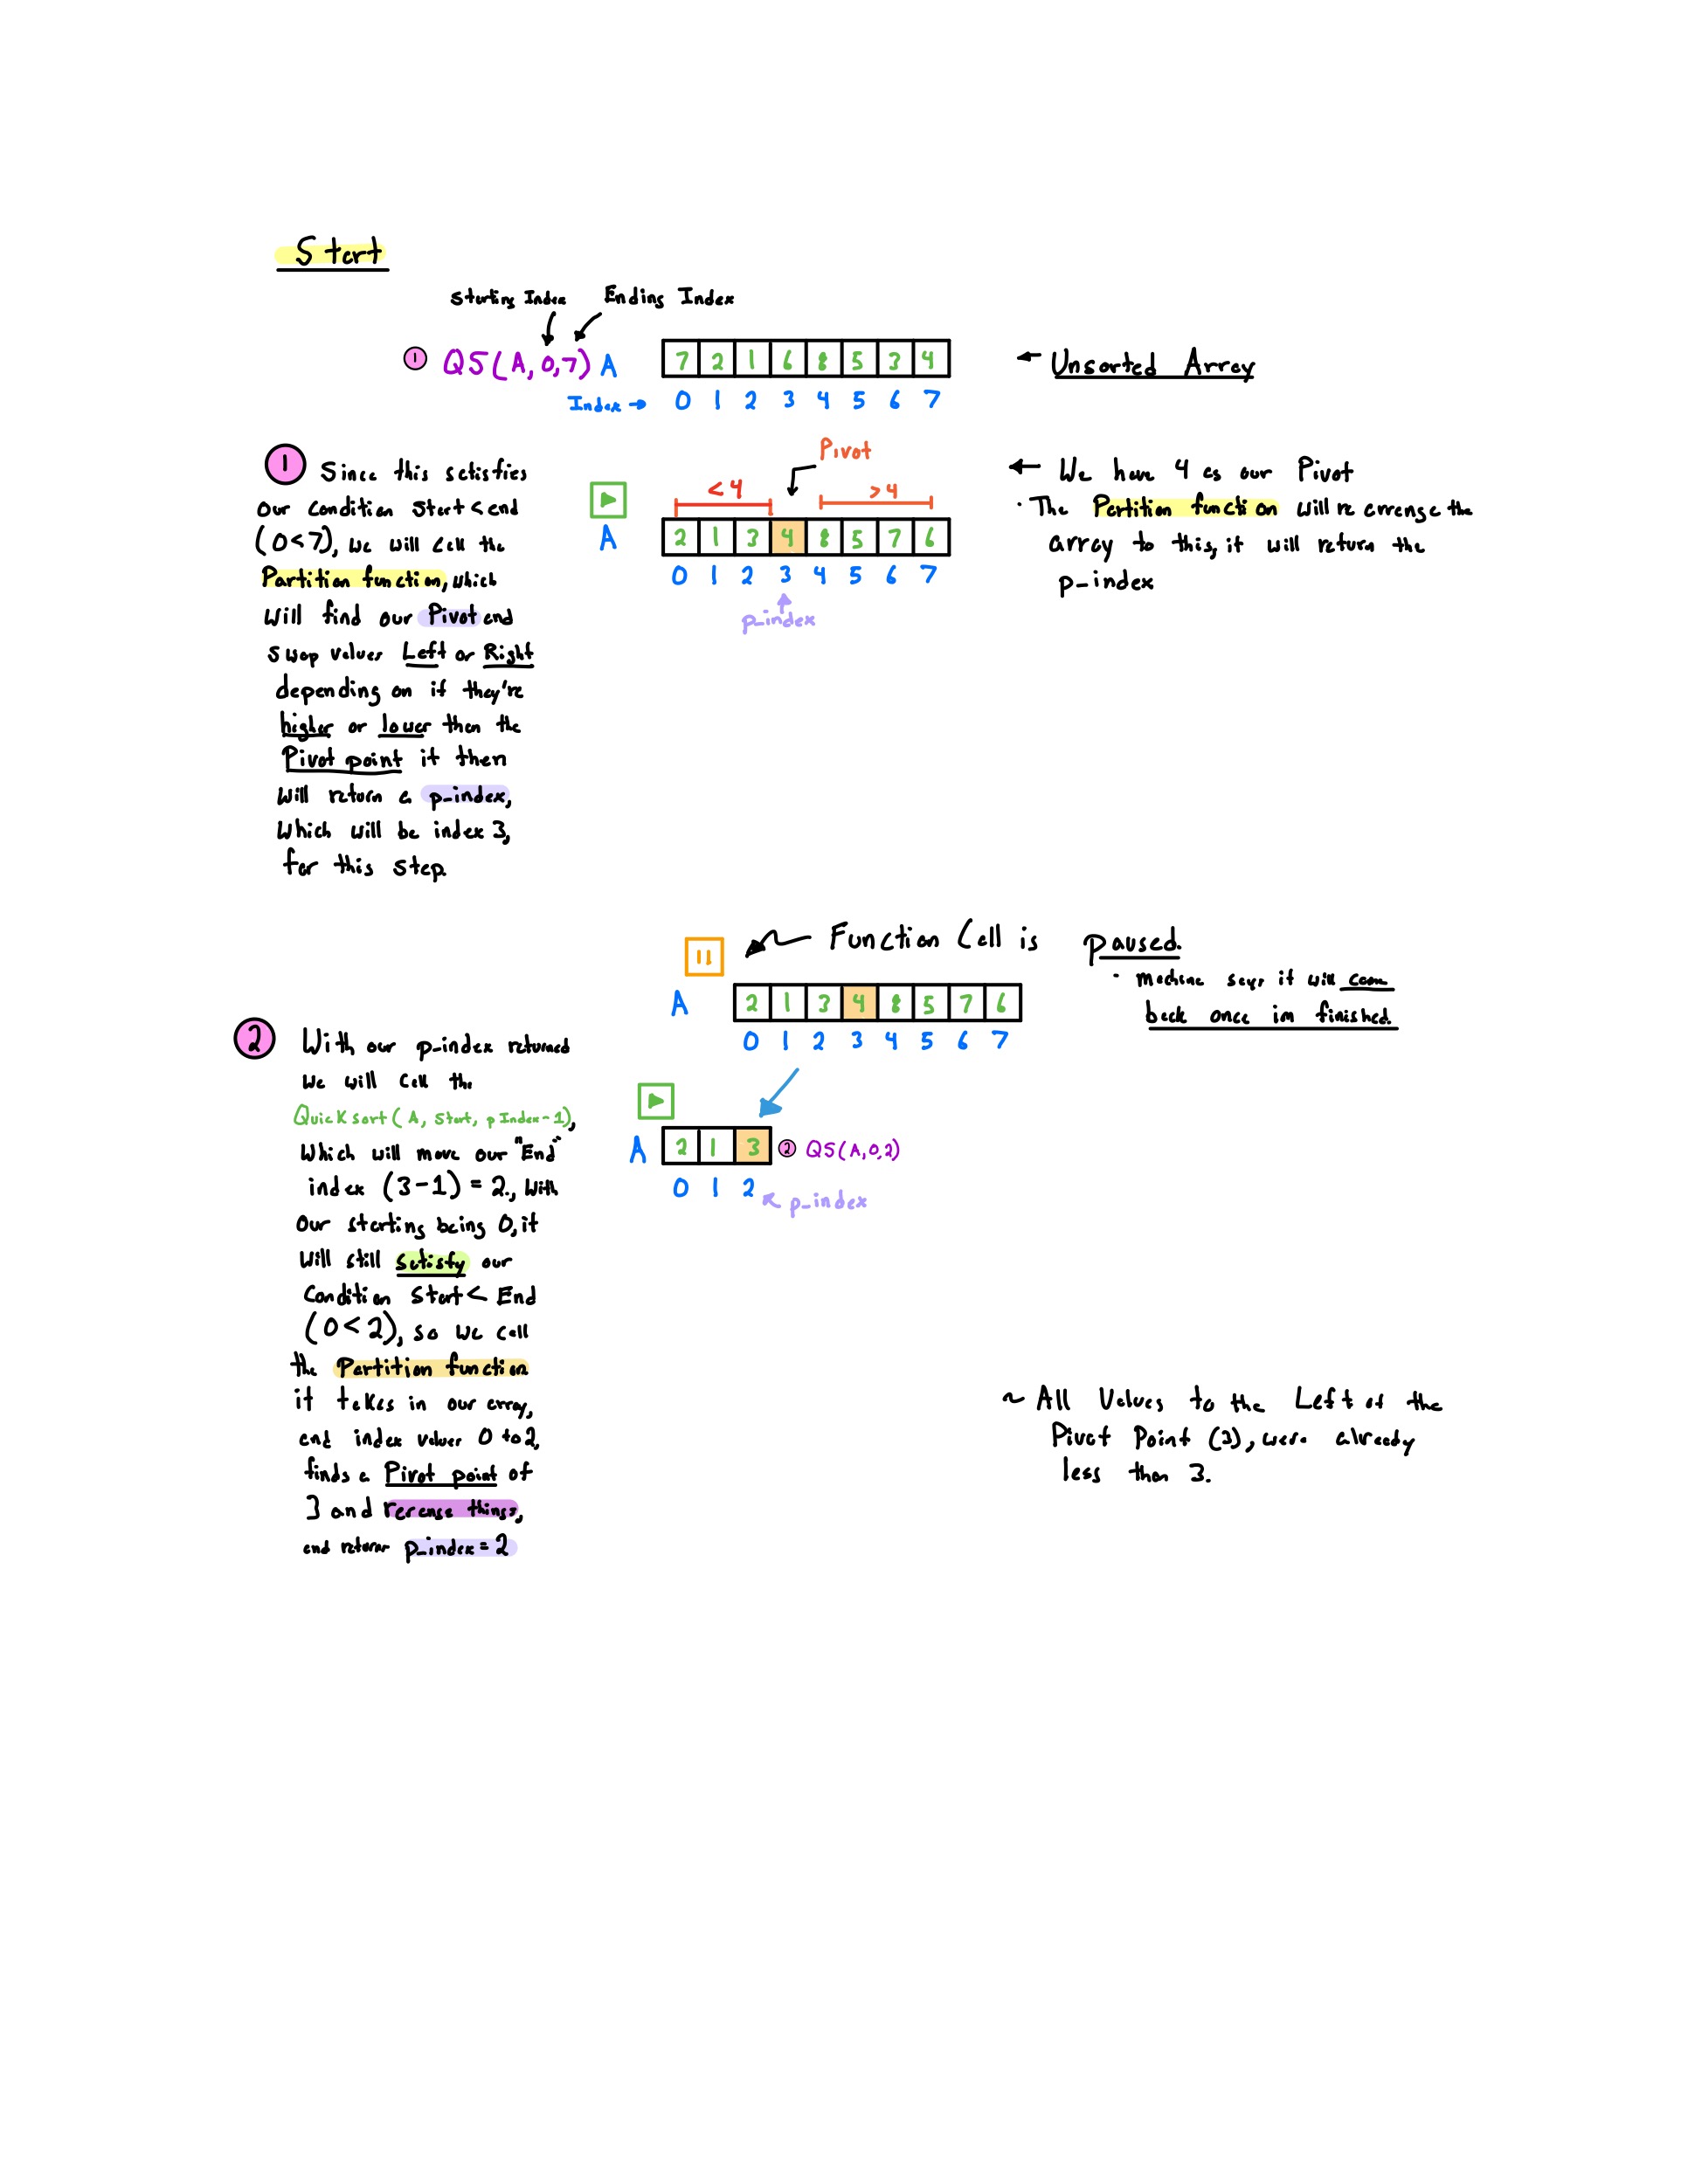 Start
Starting Index Ending Index
1 QS(A, 0,7) A 7 2 1 6 8 5 3 4 ← Unsorted Array
Index → 0 1 2 3 4 5 6 7
1 Since this satisfies
our condition Start < end
(0<7), we will call the
Partition function, which
will find our Pivot and
swap values Left or Right
depending on if they're
higher or lower than the
Pivot point it then
will return a p_index,
which will be index 3,
for this step
Pivot
<4 >4
A 2 1 3 4 8 5 7 6
0 1 2 3 4 5 6 7
p_index
← We have 4 as our Pivot
· The Partition function will rearrange the
array to this, it will return the
p_index
Function Call is paused.
· machine says it will come
back once im finished.
A 2 1 3 4 8 5 7 6
0 1 2 3 4 5 6 7
2 With our p_index returned
we will call the
Quicksort( A, Start, pIndex-1),
which will move our "End"
index (3-1) = 2., with
our starting being 0, it
will still satisfy our
condition Start < End
(0<2), so we call
the Partition function
it takes in our array,
and index values 0 to 2,
finds a Pivot point of
3 and rerenge things,
and returns p_index = 2
A 2 1 3 2 QS(A,0,2)
0 1 2
p_index
~ All Values to the Left of the
Pivot Point (3), were already
less than 3.